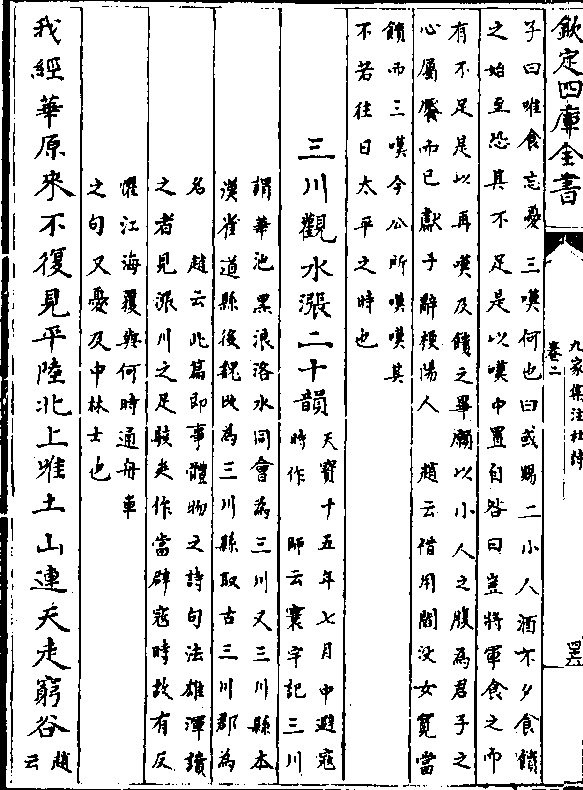 欽定四庫全書
九家集注杜詩
卷二
子曰唯食忘憂三嘆何也曰或賜二小人酒不夕食饋
之始至恐其不足是以嘆中置自咎曰豈將軍食之而
有不足是以再嘆及饋之畢願以小人之腹為君子之
心屬饜而已獻子辭梗陽人　趙云借用閻没女寛當
饋而三嘆今公所嘆嘆其
不若往日太平之時也
三川觀水漲二十韻
天寶十五年七月中避寇
時作　師云寰宇記三川
謂華池黑浪洛水同會為三川又三川縣本
漢雀道縣後魏改為三川縣取古三川郡為
名　趙云此篇即事體物之詩句法雄渾讀
之者見派川之足駭矣作當辟寇時故有反
懼江海覆與何時通舟車
之句又憂及中林士也
我經華原來不復見平陸北上唯土山連天走窮谷
趙
云